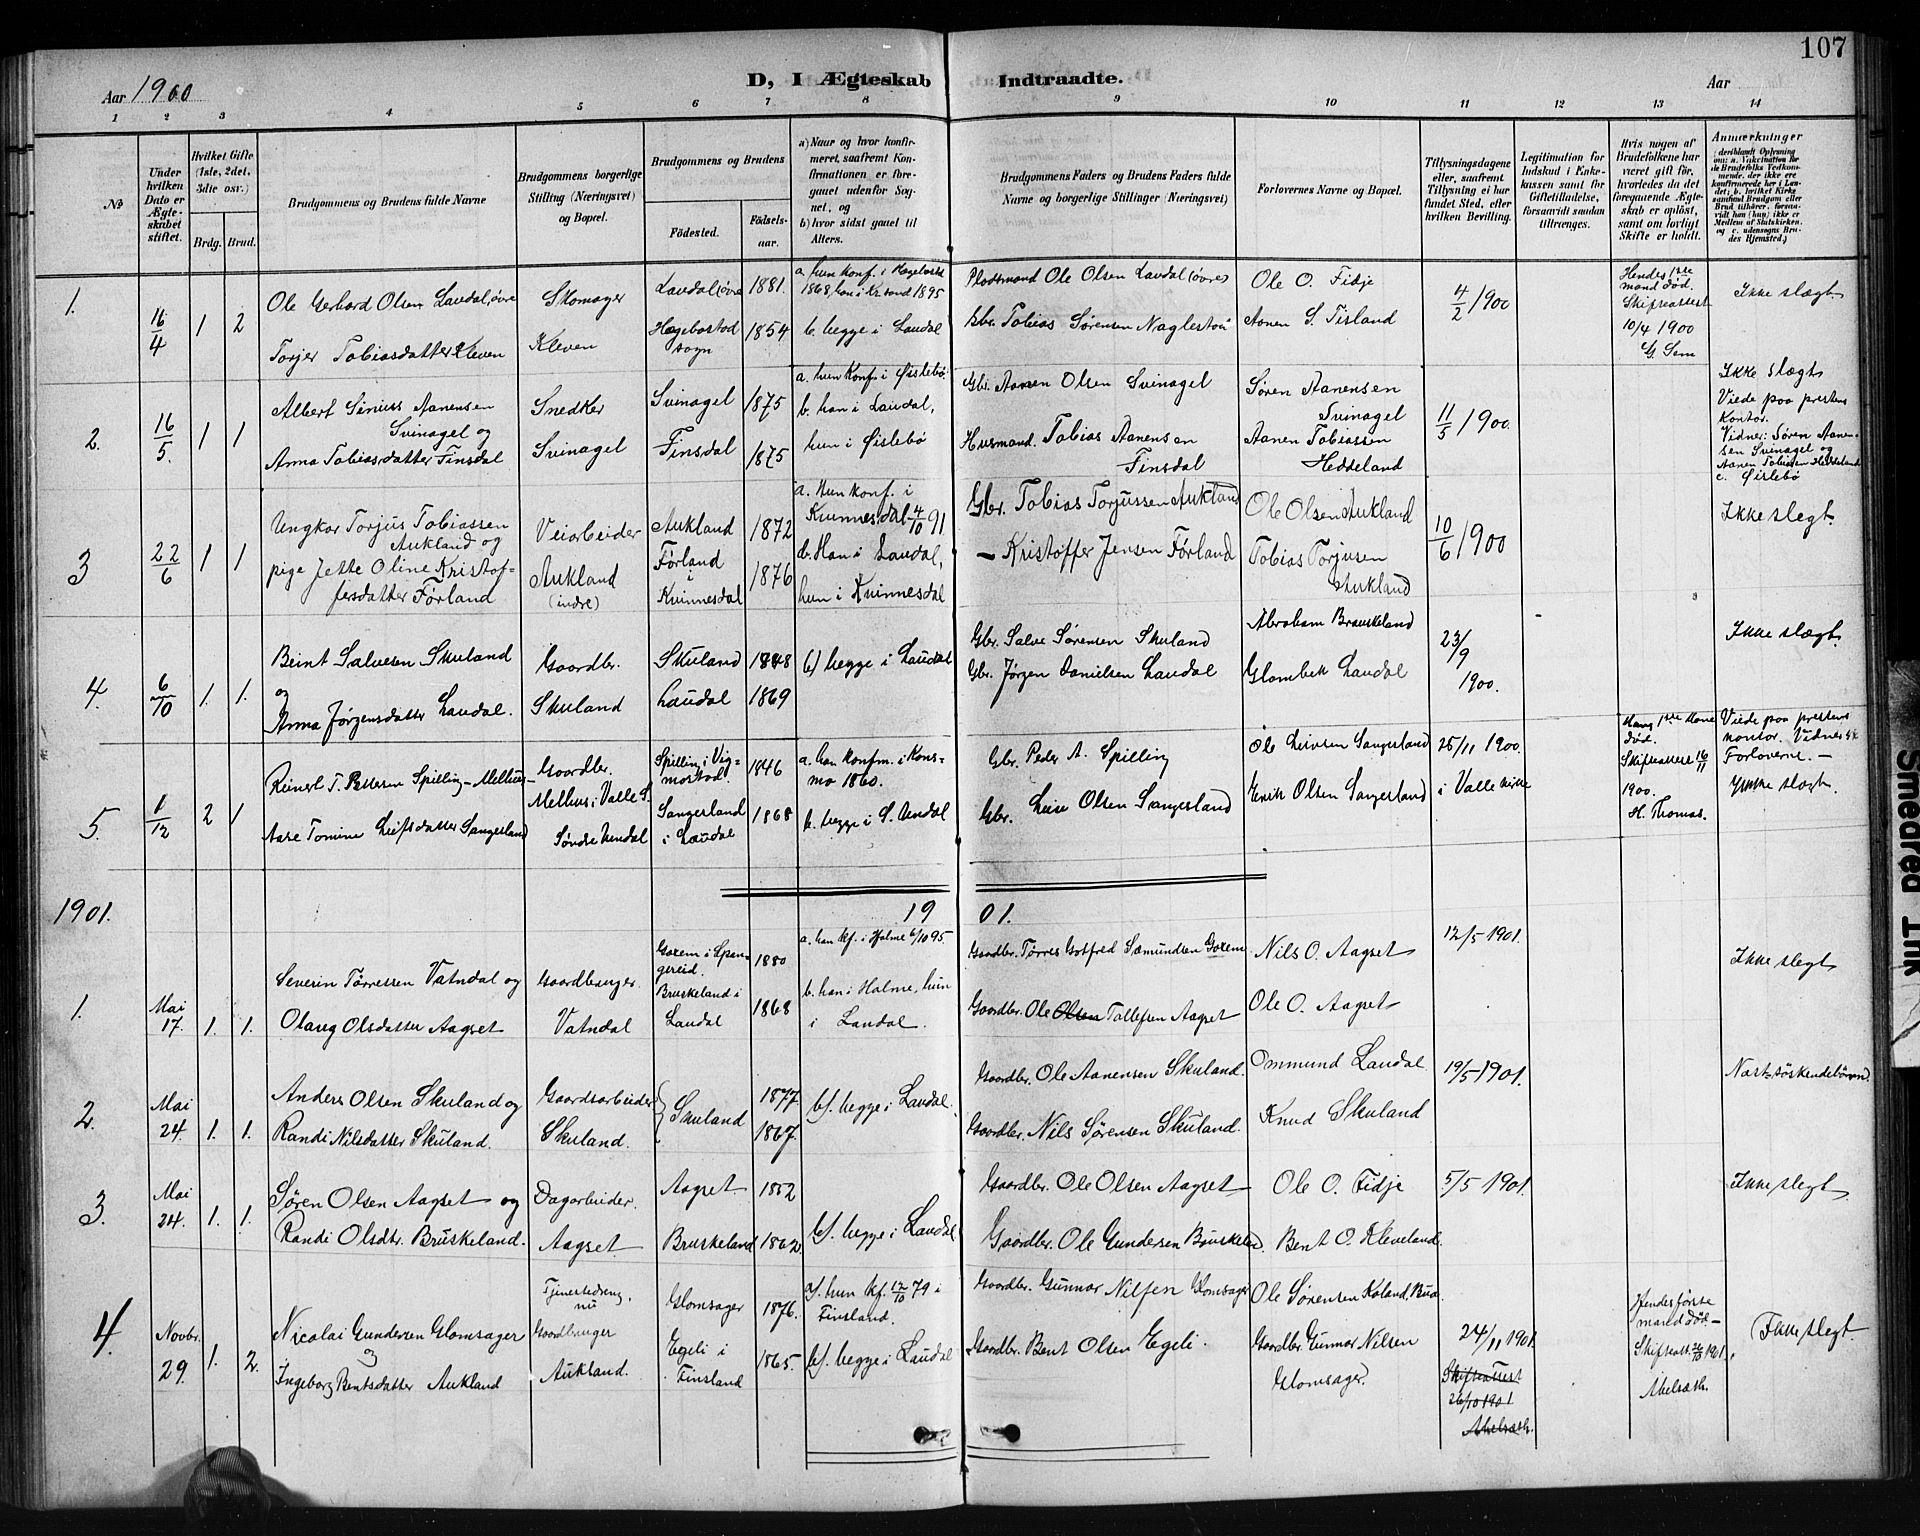 107
Aar 1900
D, I Ægteskab Indtraadte.
Aar
1 2 3 4 5 6 7 8 9 10 11 12 13 14
No
Under hvilken Dato er Ægteskabet stiftet.
Hvilket Gifte (1ste, 2det, 3die osv.)
Brdg. Brud.
Brudgommens og Brudens fulde Navne
Brudgommens borgerlige Stilling (Næringsvei) og Bopæl.
Brudgommens og Brudens
Fødested.
Fødselsaar.
a) Naar og hvor konfirmeret, saafremt Konfirmationen er foregaaet udenfor Sognet, og
b) hvor sidst gaaet til Alters.
Brudgommens Faders og Brudens Faders fulde Navne og borgerlige Stillinger (Næringsvei)
Forlovernes Navne og Bopæl.
Tillysningsdagene eller, saafremt Tillysning ei har fundet Sted, efter hvilken Bevilling.
Legitimation for Indskud i Enkekassen samt for Giftetilladelse, forsaavidt saadan tiltrænges.
Hvis nogen af Brudefolkene har været gift før, hvorledes da det foregaaende Ægteskab er opløst, samt om lovligt Skifte er holdt.
Anmærkninger
1.
16/4
1 2
Ole Gerhard Olsen Laudal, øvre
Torjer Tobiasdatter Kleven
Skomager
Kleven
Laudal (øvre
Hægebostad sogn
1881.
1854
a. hun konf. i Hægebostad 1868, han i Kr.sand 1895
b. begge i Laudal
Pladsmand Ole Olsen Laudal (øvre)
Gbr. Tobias Sørensen Naglestad
Ole O. Fidje
Aanen S. Tisland
4/2 1900
Hendes 1ste mand død.
Skifteattest
10/4 1900
G. Sem
Ikke slægt.
2.
16/5.
1 1
Albert Sinius Aanensen
Svinagel og
Anna Tobiasdatter Finsdal
Snedker
Svinagel
Svinagel
Finsdal
1875
1875
a. hun konf. i Øislebø.
b. han i Laudal,
hun i Øislebø
Gbr. Aanen Olsen Svinagel
Husmand. Tobias Aanensen
Finsdal
Søren Aanensen
Svinagel
Aanen Tobiassen
Heddeland
11/5 1900.
Ikke slægt
Viede paa prestens
kontor.
Vidner: Søren Aanensen Svinagel og
Aanen Tobiassen Heddeland
c. Øislebø
3
22/6
1 1
Ungkar Torjus Tobiassen
Aukland og
pige Jette Oline Kristoffersdatter Førland
Veiarbeider
Aukland
(indre)
Aukland
Førland
i
Kvinnesdal
1872
1876
a. Hun konf. i
Kvinnesdal 4/10 91
b. Han i Laudal,
hun i Kvinnesdal
Gbr. Tobias Torjussen Aukland
— Kristoffer Jensen Førland
Ole Olsen Aukland
Tobias Torjusen
Aukland
10/6 1900
Ikke slegt.
4.
6/10
1. 1.
Beint Salvesen Skuland
og
Anna Jørgensdatter Laudal.
Gaardbr.
Skuland
Skuland
Laudal
1848
1869
b) begge i Laudal
Gbr. Salve Sørensen Skuland
Gbr. Jørgen Danielsen Laudal
Abraham Bruskeland
Glombek Laudal
23/9
1900.
Ikke slægt.
5.
1/12
2 1
Reinert T. Pettersen Spilling-Melhus
Aase Tomine Leifsdatter Sangesland
Gaardbr.
Melhus i Valle S.
Søndre Undal
Spilling i Vigmostad
Sangesland
i Laudal
1846
1868
a. han konfm. i Konsmo 1860.
b. begge i S. Undal
Gbr. Peder A. Spilling
Gbr. Leiv Olsen Sangesland
Ole Leivsen Sangesland
Erik Olsen Sangesland
25/11 1900.
i Valle kirke
Hans 1ste Kone
død.
Skifteattest 16/11
1900.
H. Thomas.
Viede paa prestens
kontor. Vidner
Forloverne. —
Ikke slegt.
1901. 19 01.
1.
Mai
17.
1. 1.
Severin Tørressen Vatndal og
Olaug Olsdatter Aagset
Gaardbruger
Vatndal
Goxem i Spangereid.
Bruskeland i
Laudal
1880
1868
a. han kf. i Holme 6/10 95
b. han i Halme, hun
i Laudal.
Gaardbr. Tørres Gotfred Sæmundsen Goxem
Gaardbr. Ole Olsen Tallefsen Aagset
Nils O. Aagset
Ole O. Aagset
12/5 1901.
Ikke slegt
2.
Mai
24.
1. 1.
Anders Olsen Skuland og
Randi Nilsdatter Skuland.
Gaardsarbeider
Skuland.
Skuland
1877
1867.
b). begge i Laudal.
Gaardbr. Ole Aanensen Skuland.
Gaardbr. Nils Sørensen Skuland.
Ommund Laudal
Knud Skuland
19/5 1901.
Næst-søskendebørn
3.
Mai
24.
1. 1.
Søren Olsen Aagset og
Randi Olsdtr. Bruskeland.
Dagarbeider.
Aagset.
Aagset
Bruskeland
1852
1862
b). begge i Laudal
Gaardbr. Ole Olsen Aagset
Gaardbr. Ole Gundersen Bruskeland.
Ole O. Fidje
Bent O. Kleveland.
5/5 1901.
Ikke slegt
4.
Novbr.
29.
1. 2.
Nicolai Gundersen Glomsager
Ingeborg Bentsdatter Aukland
Tjenestedreng,
nu
Gaardbruger
Aukland.
Glomsager
Egeli i
Finsland
1876.
1865.
a). hun kf. 12/10 79 i
Finsland.
b). begge i Laudal
Gaardbr. Gunnar Nilsen Glomsager
Gaardbr. Bent Olsen Egeli.
Ole Sørensen Kaland.
Gaardbr. Gunnar Nilsen
Glomsager.
24/11 1901.
Skifteattest
26/10 1901
Abelseth.
Hendes første
mand død —
Skifteatt. 26/10 1901.
Abelseth.
Ikke slegt.
Smedred Ink